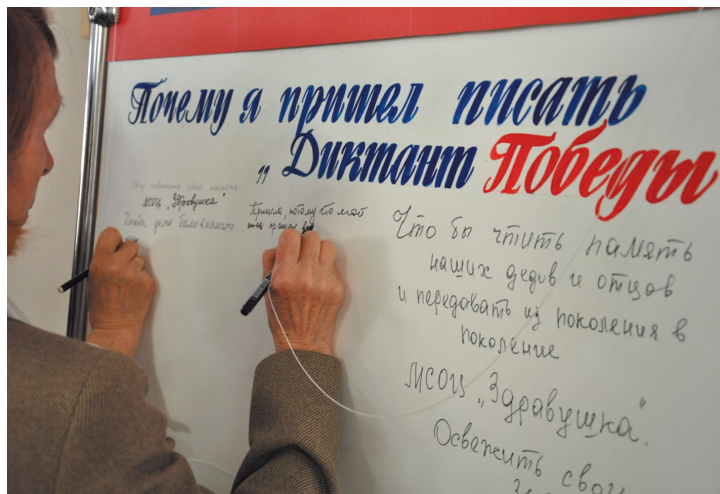 Почему я пришел писать
„Диктант Победы
Хочу освежить свою память
МСОЦ „Здравушка"
Чтобы дети
Пришла, потому что мой
отец прошел
Что бы чтить память
наших дедов и отцов
и передавать из поколения в
поколение
МСОЦ „Здравушка".
Освежить свои